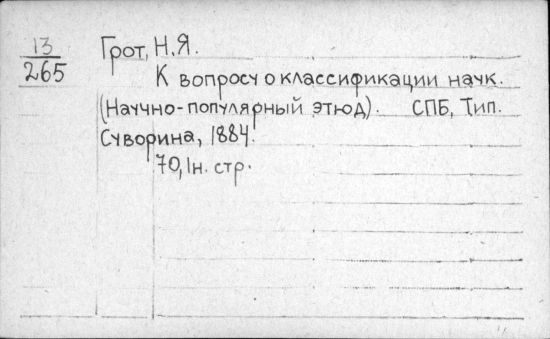 13
265
Грот, Н.Я.
К вопросу о классификации наук.
(Научно-популярный этюд). СПБ, Тип.
Суворина, 1884.
70, 1н. стр.